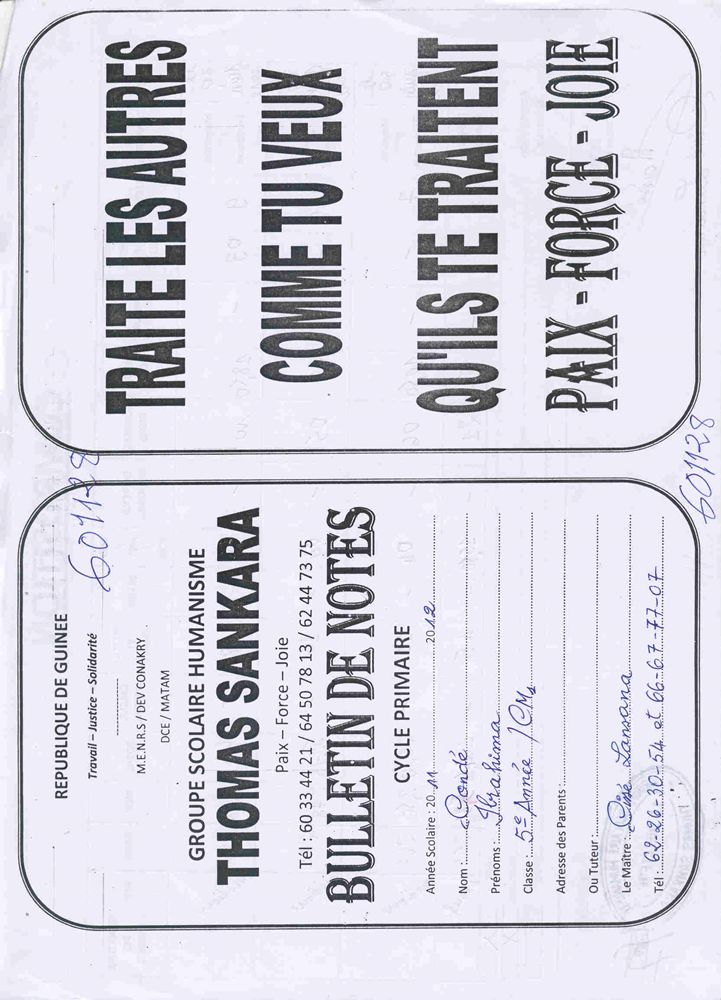 REPUBLIQUE DE GUINEE
Travail – Justice – Solidarité
601128
M.E.N.R.S / DEV CONAKRY
DCE / MATAM
GROUPE SCOLAIRE HUMANISME
THOMAS SANKARA
Paix – Force – Joie
Tél : 60 33 44 21 / 64 50 78 13 / 62 44 73 75
BULLETIN DE NOTES
CYCLE PRIMAIRE
Année Scolaire : 20 11 2012
Nom : Condé
Prénoms : Ibrahima
Classe : 5e Année / CM1
Adresse des Parents :
Ou Tuteur :
Le Maître : Cissé Lansana
Tél : 62-26-30-54 et 66-67-77-07
TRAITE LES AUTRES
COMME TU VEUX
QU'ILS TE TRAITENT
PAIX - FORCE - JOIE
601128